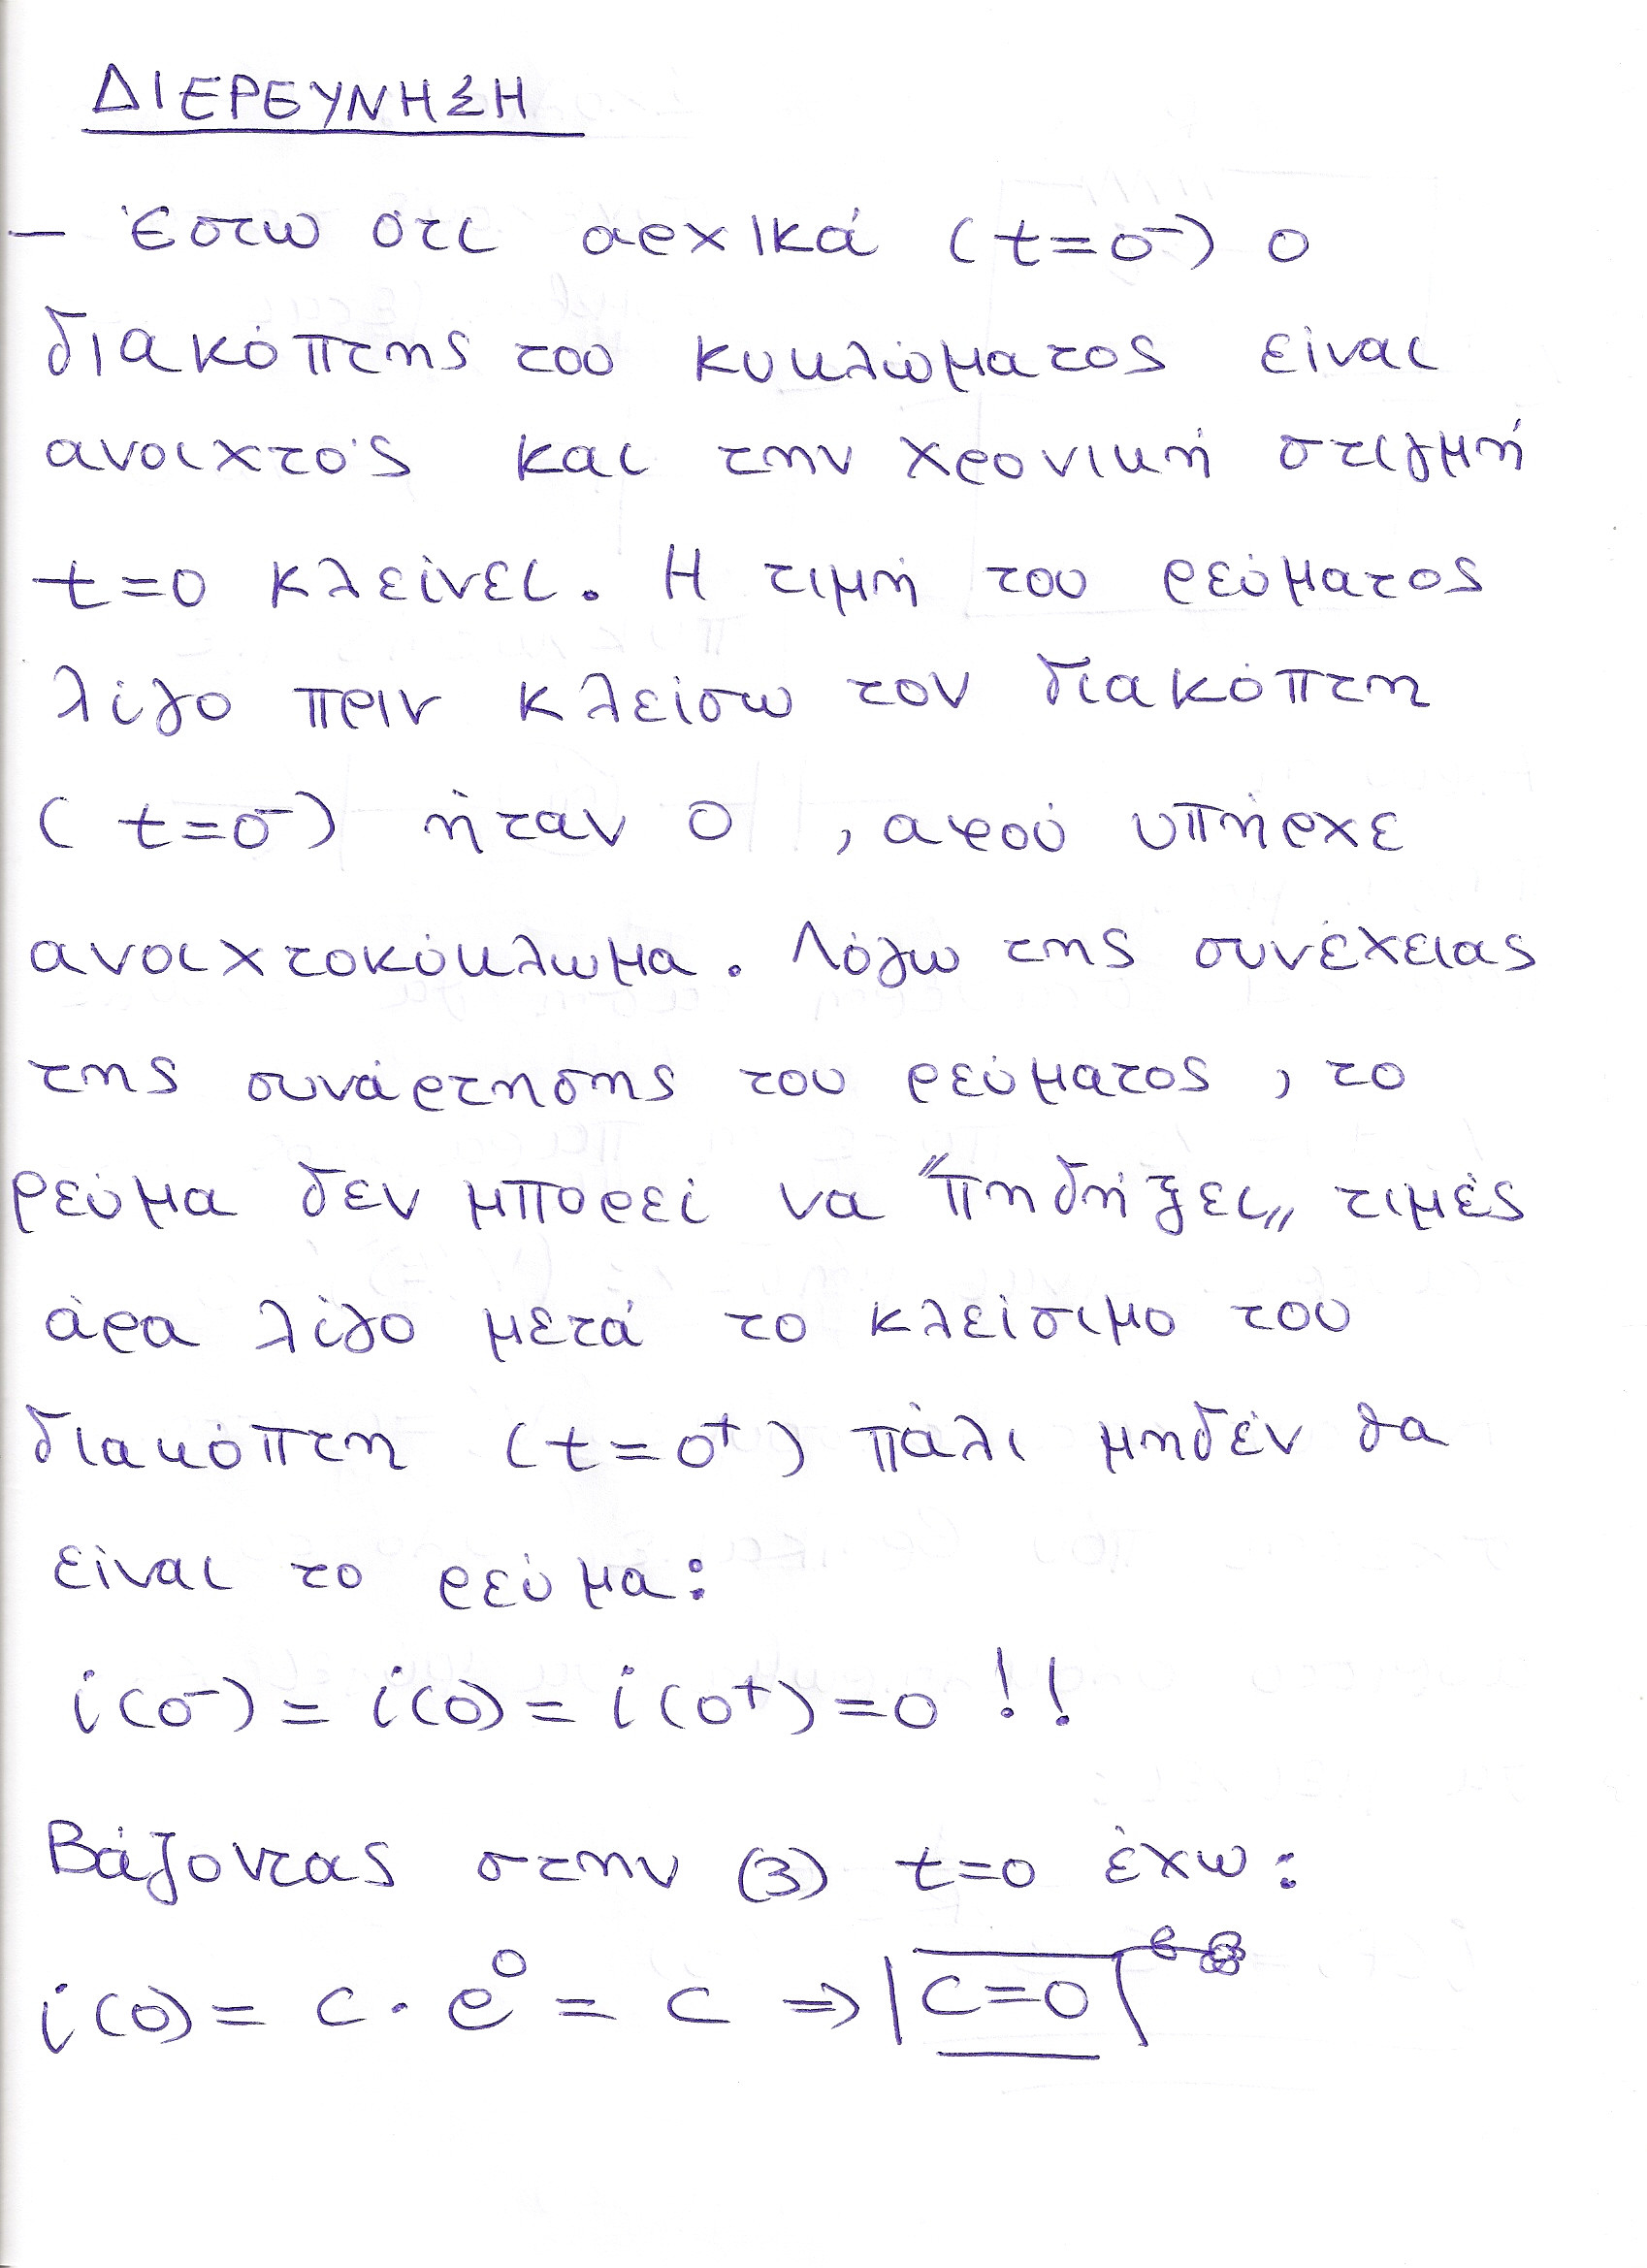 ΔΙΕΡΕΥΝΗΣΗ
- Έστω ότι αρχικά (t=0⁻) ο
διακόπτης του κυκλώματος είναι
ανοιχτός και την χρονική στιγμή
t=0 κλείνει. Η τιμή του ρεύματος
λίγο πριν κλείσω τον διακόπτη
(t=0⁻) ήταν 0 , αφού υπήρχε
ανοιχτοκύκλωμα. Λόγω της συνέχειας
της συνάρτησης του ρεύματος, το
ρεύμα δεν μπορεί να "πηδήξει,, τιμές
άρα λίγο μετά το κλείσιμο του
διακόπτη (t=0⁺) πάλι μηδέν θα
είναι το ρεύμα:
i(0⁻) = i(0) = i(0⁺) = 0 !!
Βάζοντας στην (3) t=0 έχω:
i(0) = c · e⁰ = c ⇒ |c=0|